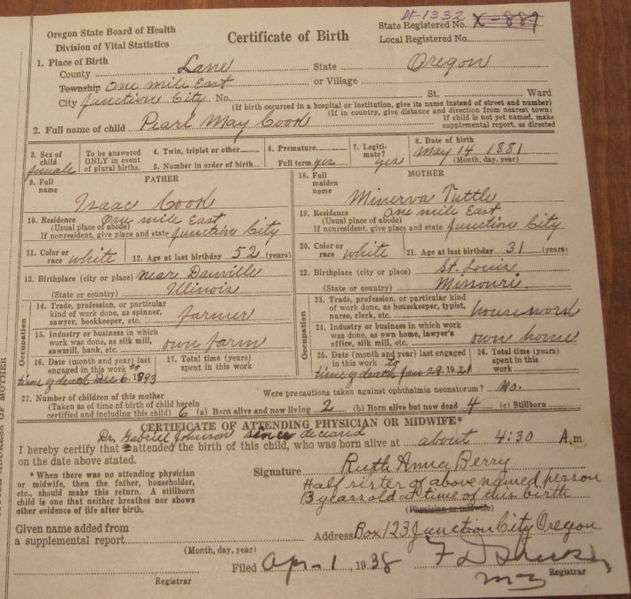 Oregon State Board of Health
Division of Vital Statistics
Certificate of Birth
St-1332
State Registered No. X-887
Local Registered No.
1. Place of Birth
County Lane State Oregon
Township One mile East or Village
City Junction City No. St. Ward
(If birth occurred in a hospital or institution, give its name instead of street and number)
(If in country, give distance and direction from nearest town)
2. Full name of child Pearl May Cook
If child is not yet named, make supplemental report, as directed
3. Sex of child female
To be answered ONLY in event of plural births.
4. Twin, triplet or other
5. Number in order of birth
6. Premature
Full term yes
7. Legitimate? yes
8. Date of birth May 14 1881
(Month, day, year)
9. Full name FATHER
Isaac Cook
18. Full maiden name MOTHER
Minerva Tuttle
10. Residence One mile East
(Usual place of abode)
If nonresident, give place and state Junction City
19. Residence One mile East
(Usual place of abode)
If nonresident, give place and state Junction City
11. Color or race white 12. Age at last birthday 52 (years)
20. Color or race white 21. Age at last birthday 31 (years)
13. Birthplace (city or place) near Danville
(State or country) Illinois
22. Birthplace (city or place) St. Louis
(State or country) Missouri.
Occupation
14. Trade, profession, or particular kind of work done, as spinner, sawyer, bookkeeper, etc. farmer
15. Industry or business in which work was done, as silk mill, sawmill, bank, etc. own farm
16. Date (month and year) last engaged in this work
time of death Dec 6. 1893
17. Total time (years) spent in work
Occupation
23. Trade, profession, or particular kind of work done, as housekeeper, typist, nurse, clerk, etc. housework
24. Industry or business in which work was done, as own home, lawyer's office, silk mill, etc. own home
25. Date (month and year) last engaged in this work
time of death Jan 28 1921
26. Total time (years) spent in this work
Were precautions taken against ophthalmia neonatorum? no.
27. Number of children of this mother
(Taken as of time of birth of child herein certified and including this child) 6 (a) Born alive and now living 2 (b) Born alive but now dead 4 (c) Stillborn
CERTIFICATE OF ATTENDING PHYSICIAN OR MIDWIFE*
Dr. Johnson since deceased
I hereby certify that attended the birth of this child, who was born alive at about 4:30 A.m.
on the date above stated.
* When there was no attending physician or midwife, then the father, householder, etc., should make this return. A stillborn child is one that neither breathes nor shows other evidence of life after birth.
Signature Ruth Berry
Half sister of above named person
13 years old at time of this birth
(Physician or midwife)
Given name added from
a supplemental report
(Month, day, year)
Address Box 123 Junction City Oregon
Filed Apr 1, 1938
Registrar
Registrar